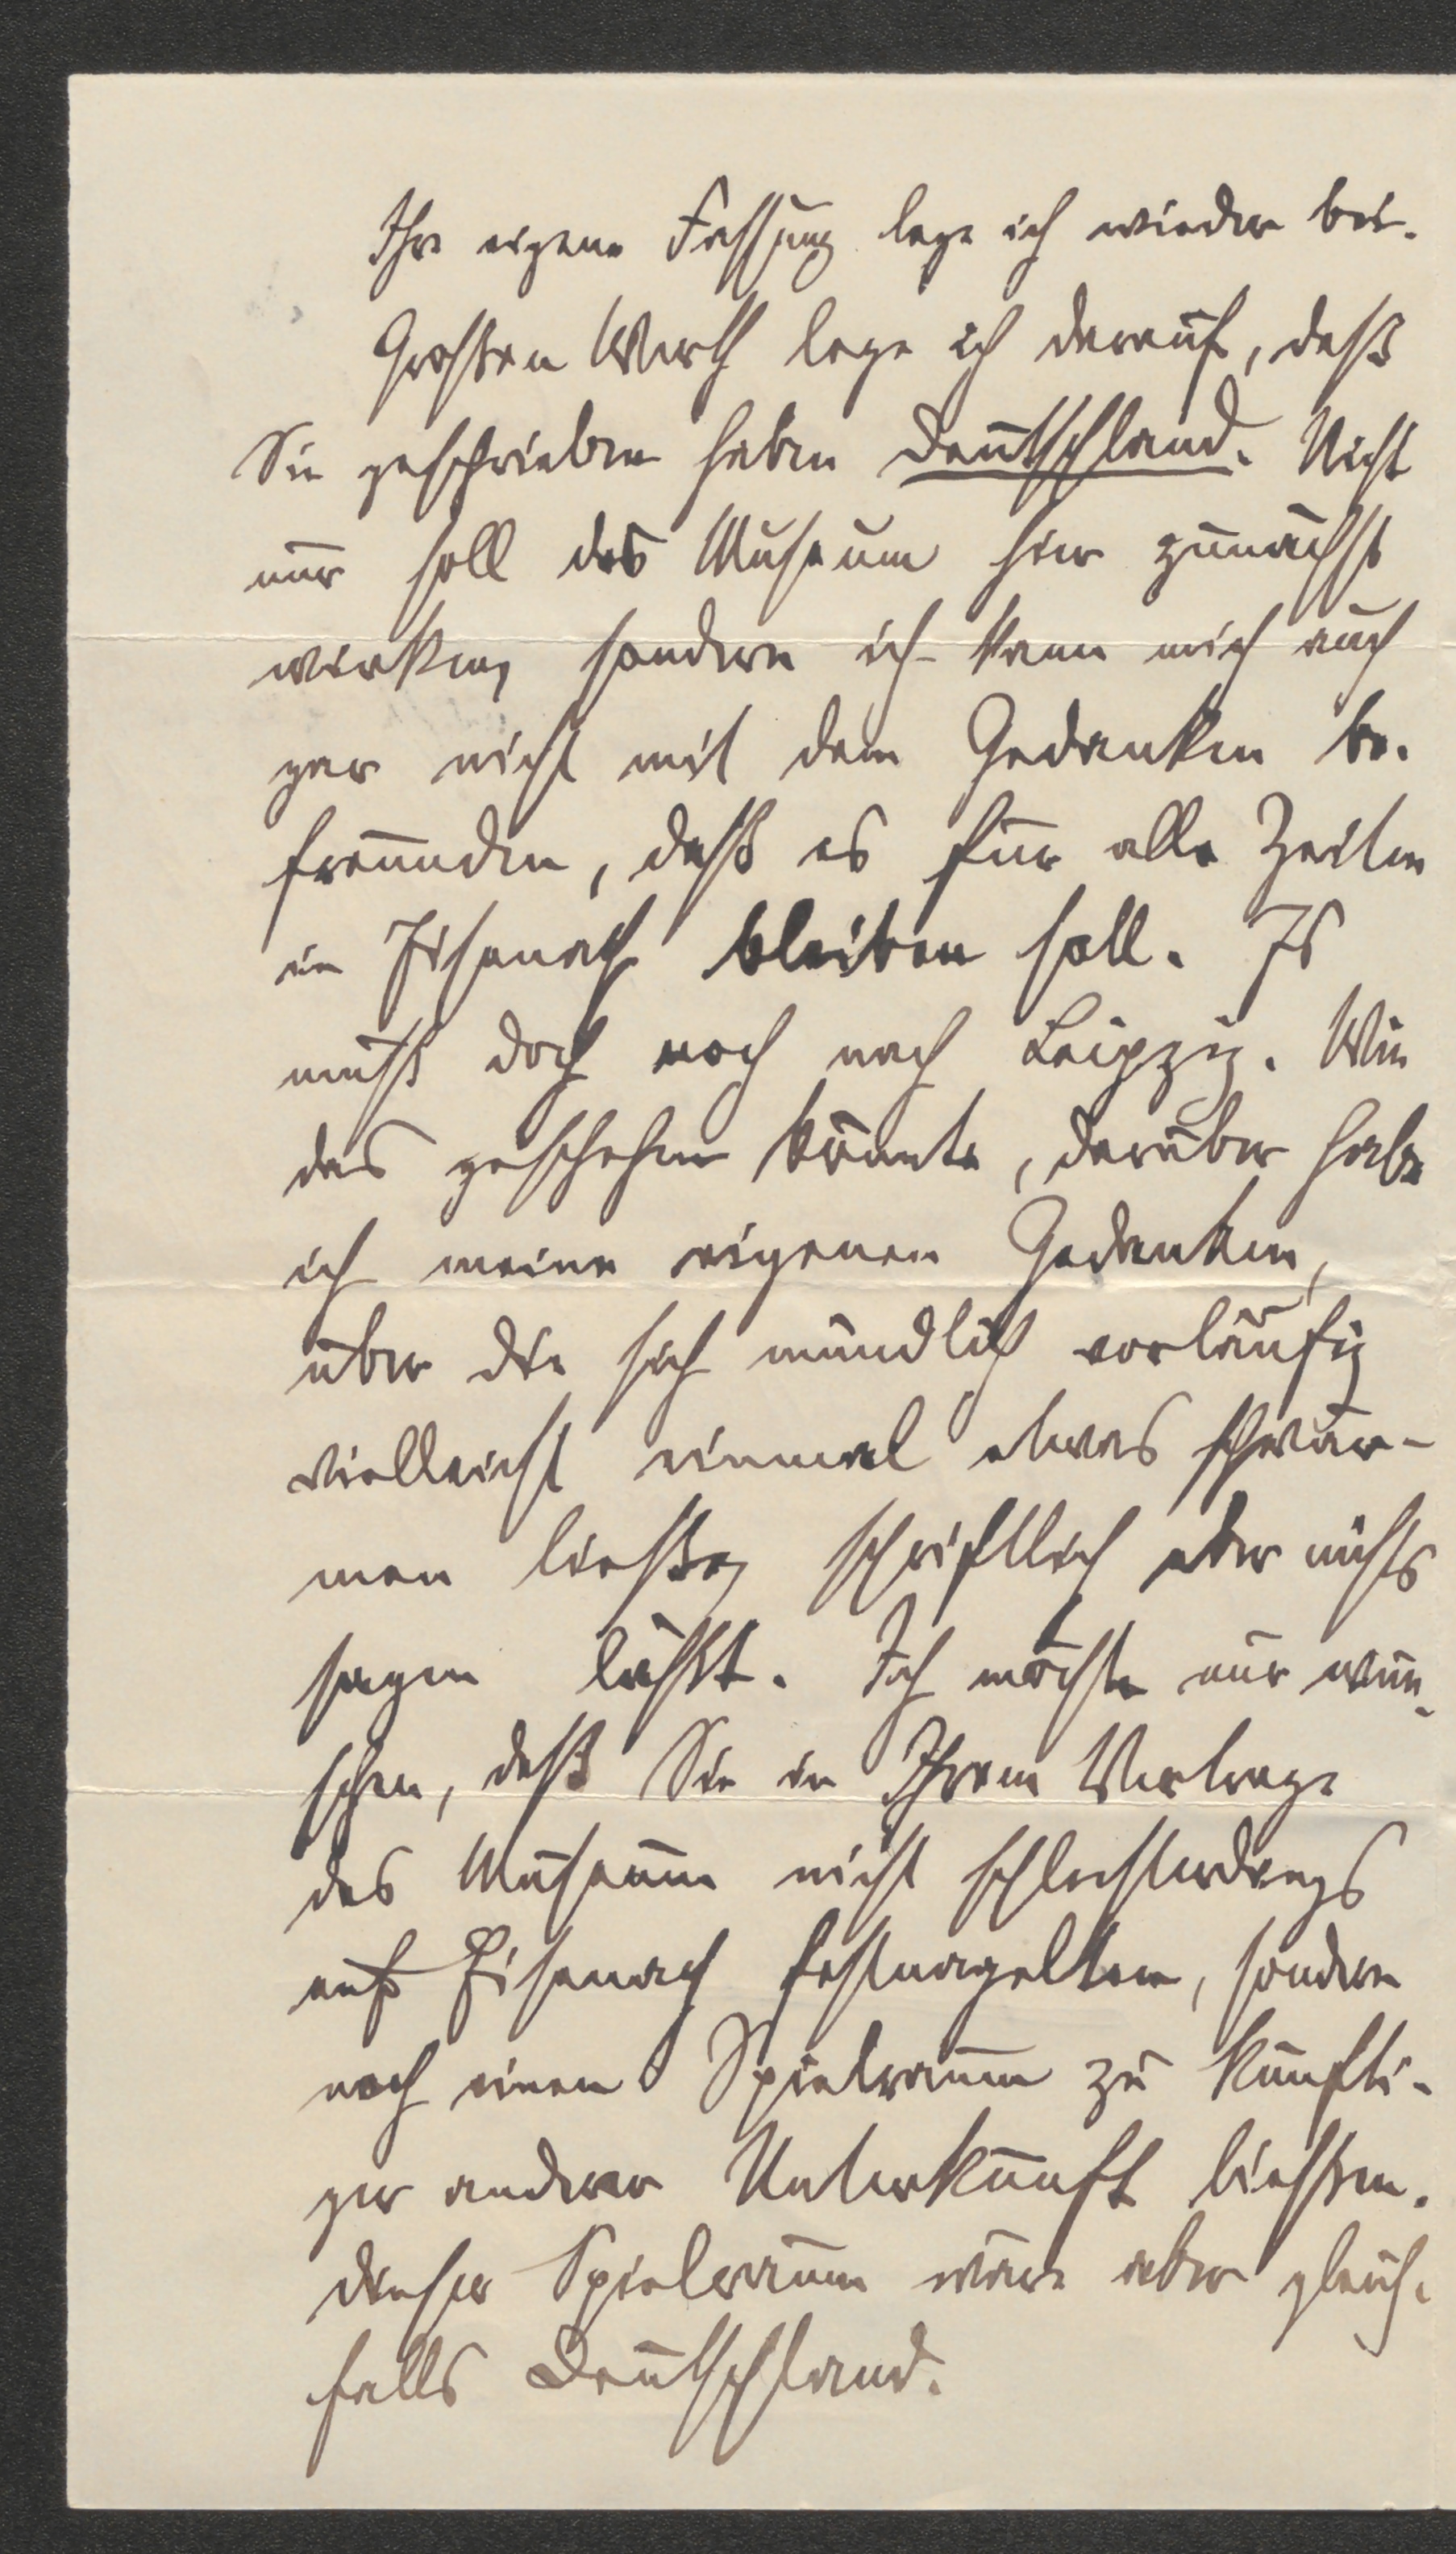 Ihre eigene Fassung lege ich wieder bei.
Großen Werth lege ich darauf, daß
Sie geschrieben haben Deutschland. Nicht
nur soll das Museum hier zunächst
wirken, sondern ich kann mich auch
gar nicht mit dem Gedanken be-
freunden, daß es für alle Zeiten
in Eisenach bleiben soll. Es
muß doch noch nach Leipzig. Wie
das geschehen könnte, darüber habe
ich meine eigenen Gedanken,
über die sich mündlich vorläufig
vielleicht einmal etwas schwär-
men ließe, schriftlich aber nichts
sagen läßt. Ich möchte nur wün-
schen, daß Sie in Ihrem Vertrage
das Museum nicht schlechterdings
auf Eisenach festnagelten, sondern
noch einen Spielraum zu künfti-
ger anderer Unterkunft ließen.
Dieser Spielraum wäre aber gleich-
falls Deutschland.